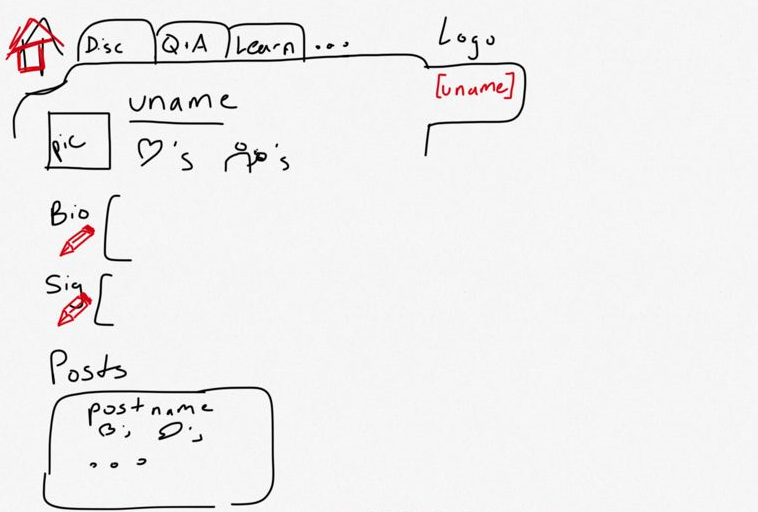 Disc Q&A Learn ... Logo
[uname]
uname
pic
's 's
Bio
Sig
Posts
postname
...